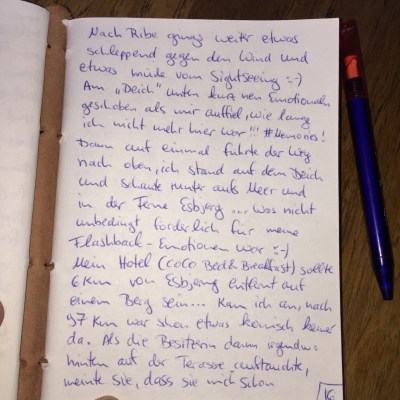 Nach Ribe ging weiter etwas
schleppend gegen den Wind und
etwas müde vom Sightseeing :-)
Am "Deich" unten kurz nen Emotionalen
geschoben als mir auffiel, wie lang
ich nicht mehr hier war!!! #Memories!
Dann auf einmal führte der Weg
nach oben, ich stand auf dem Deich
und schaute runter aufs Meer und
in der Ferne Esbjerg... was nicht
unbedingt förderlich für meine
Flashback-Emotionen war :-)
Mein Hotel (CoCo Bed & Breakfast) sollte
6 km von Esbjerg entfernt auf
einem Berg sein... Kam ich an, nach
97 km war schon etwas komisch keiner
da. Als die Besitzerin dann irgendwo
hinten auf der Terasse auftauchte,
meinte sie, dass sie mich schon
16